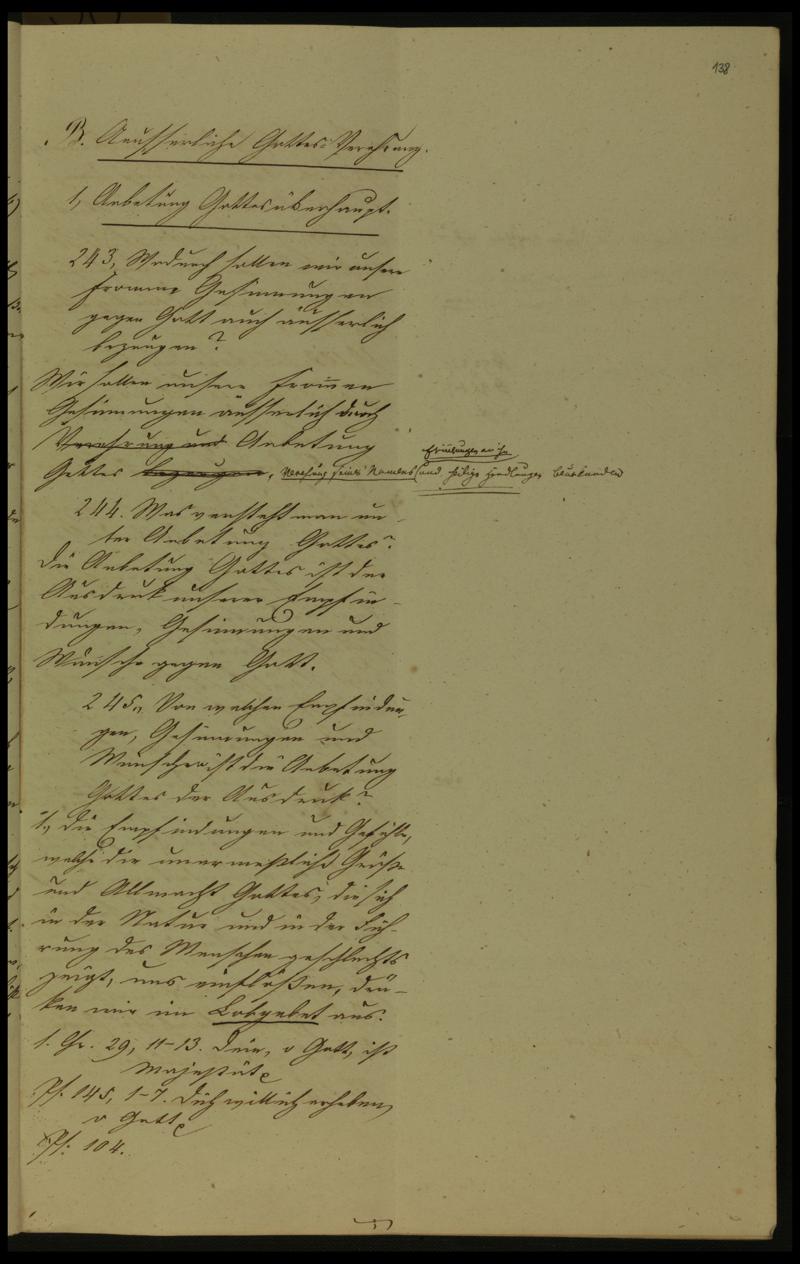 138
B. Aeusserliche Gottes-Verehrung.
1, Anbetung Gottes überhaupt.
243, Wodurch sollen wir unsere
fromme Gesinnungen
gegen Gott auch äusserlich
bezeugen?
Wir sollen unsere fromen
Gesinnungen äusserlich durch
Verehrung und Anbetung
Erinnerungen an ihn
Gottes bezeugen, Verehrung seines Namens und heilige Handlungen beurkunden
244. Was versteht man un-
ter Anbetung Gottes?
Die Anbetung Gottes ist der
Ausdruck unserer Empfin-
dungen, Gesinnungen und
Wünsche gegen Gott.
245, Von welchen Empfindun-
gen, Gesinnungen und
Wünschen ist die Anbetung
Gottes der Ausdruck?
1, die Empfindungen und Gefühle,
welche die unermeßliche Größe
und Allmacht Gottes, die sich
in der Natur und in der Füh-
rung des Menschengeschlechts
zeigt, uns einflößen, drü-
ken wir im Lobgebet aus.
1. Chr. 29, 11-13. Dein, o Gott, ist
Majestät
Ps. 145, 1-7. Dich will ich erheben,
o Gott
Ps. 104.